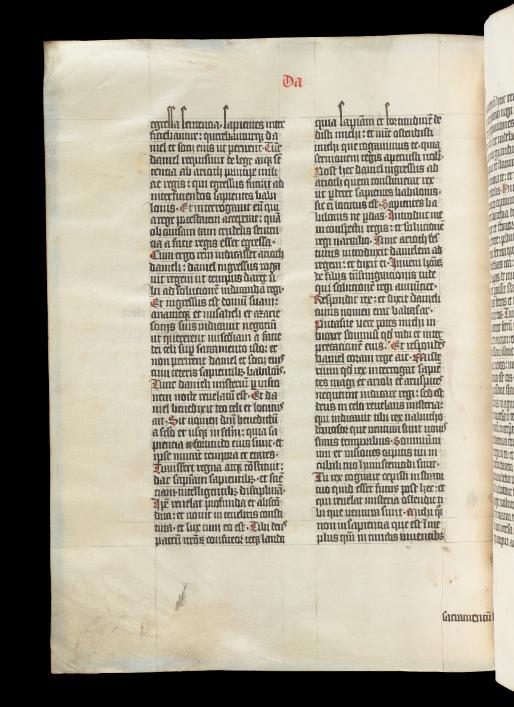 Da
egressa sententia. sapientes inter
ficiebantur: querebanturqz da
niel et socij eius ut perirent. Tūc
daniel requisiuit de lege atqz sē
tentia ab arioch principe mili
cie regis: qui egressus fuerat ad
interficiendos sapientes babi
lonis. Et interrogauit eū qui
a rege potestatem acceperat: quā
ob causam tam crudelis senten
tia a facie regis esset egressa.
Cum ergo rem indicasset arioch
danieli: daniel ingressus roga
uit regem ut tempus daret si
bi ad solutionē indicandā regi.
Et ingressus est domū suam:
ananieqz et misaheli et azarie
socijs suis indicauit negociū
ut quererent misericordiam a facie
dei celi sup sacramento isto: et
non perirent daniel et socij eius
cum ceteris sapientibz babilonis.
Tunc danieli misteriū p uisio
nem nocte reuelatū est. Et da
niel benedixit deo celi et locutus
ait. Sit nomen dn̄i benedictū
a seculo et usqz in sc̄lm: quia sa
pientia et fortitudo eius sunt: et
ipse mutat tempora et etates.
Transfert regna atqz cōstituit:
dat sapiam sapientibz. et sciē
ciam intelligentibz disciplinā.
Ipē reuelat profunda et abscō
dita: et nouit in tenebris consti
tuta. et lux cum eo est. Tibi deus
patrū nrōꝝ confiteor teqz laudo
quia sapiam et fortitudinē de
disti michi: et nūc ostendisti
michi que rogauimus te. quia
sermonem regis aperuisti nobis.
Post hec daniel ingressus ad
arioch quem constituerat rex
ut pderet sapientes babilonis.
sic ei locutus est. Sapientes ba
bilonis ne pdas. Introduc me
in conspectu regis: et solucionē
regi narrabo. Tunc arioch fes
tinus introduxit danielem ad
regem: et dixit ei. Inueni hoiēm
de filijs transmigrationis iude
qui solucionē regi annunciet.
Respondit rex: et dixit danieli
cuius nomen erat baltasar.
Putasne vere potes michi in
dicare sompniū qd uidi et inter
pretacionē eius. Et respondēs
daniel coram rege ait. Miste
rium qd rex interrogat sapiē
tes magi et arioli et aruspices
nequeunt indicare regi: sed est
deus in celo reuelans misteria:
qui indicauit tibi rex nabucho
donosor que uentura sunt nouis
simis temporibus. Sompniū tu
um et visiones capitis tui in
cubili tuo huiuscemodi sunt.
Tu rex cogitare cepisti in stratu
tuo quid esset futurū post hec: et
qui reuelat misteria ostendit ti
bi que ventura sunt. Michi qz
non in sapientia que est ī me
plus qm̄ in cunctis viuentibus
sacramentū